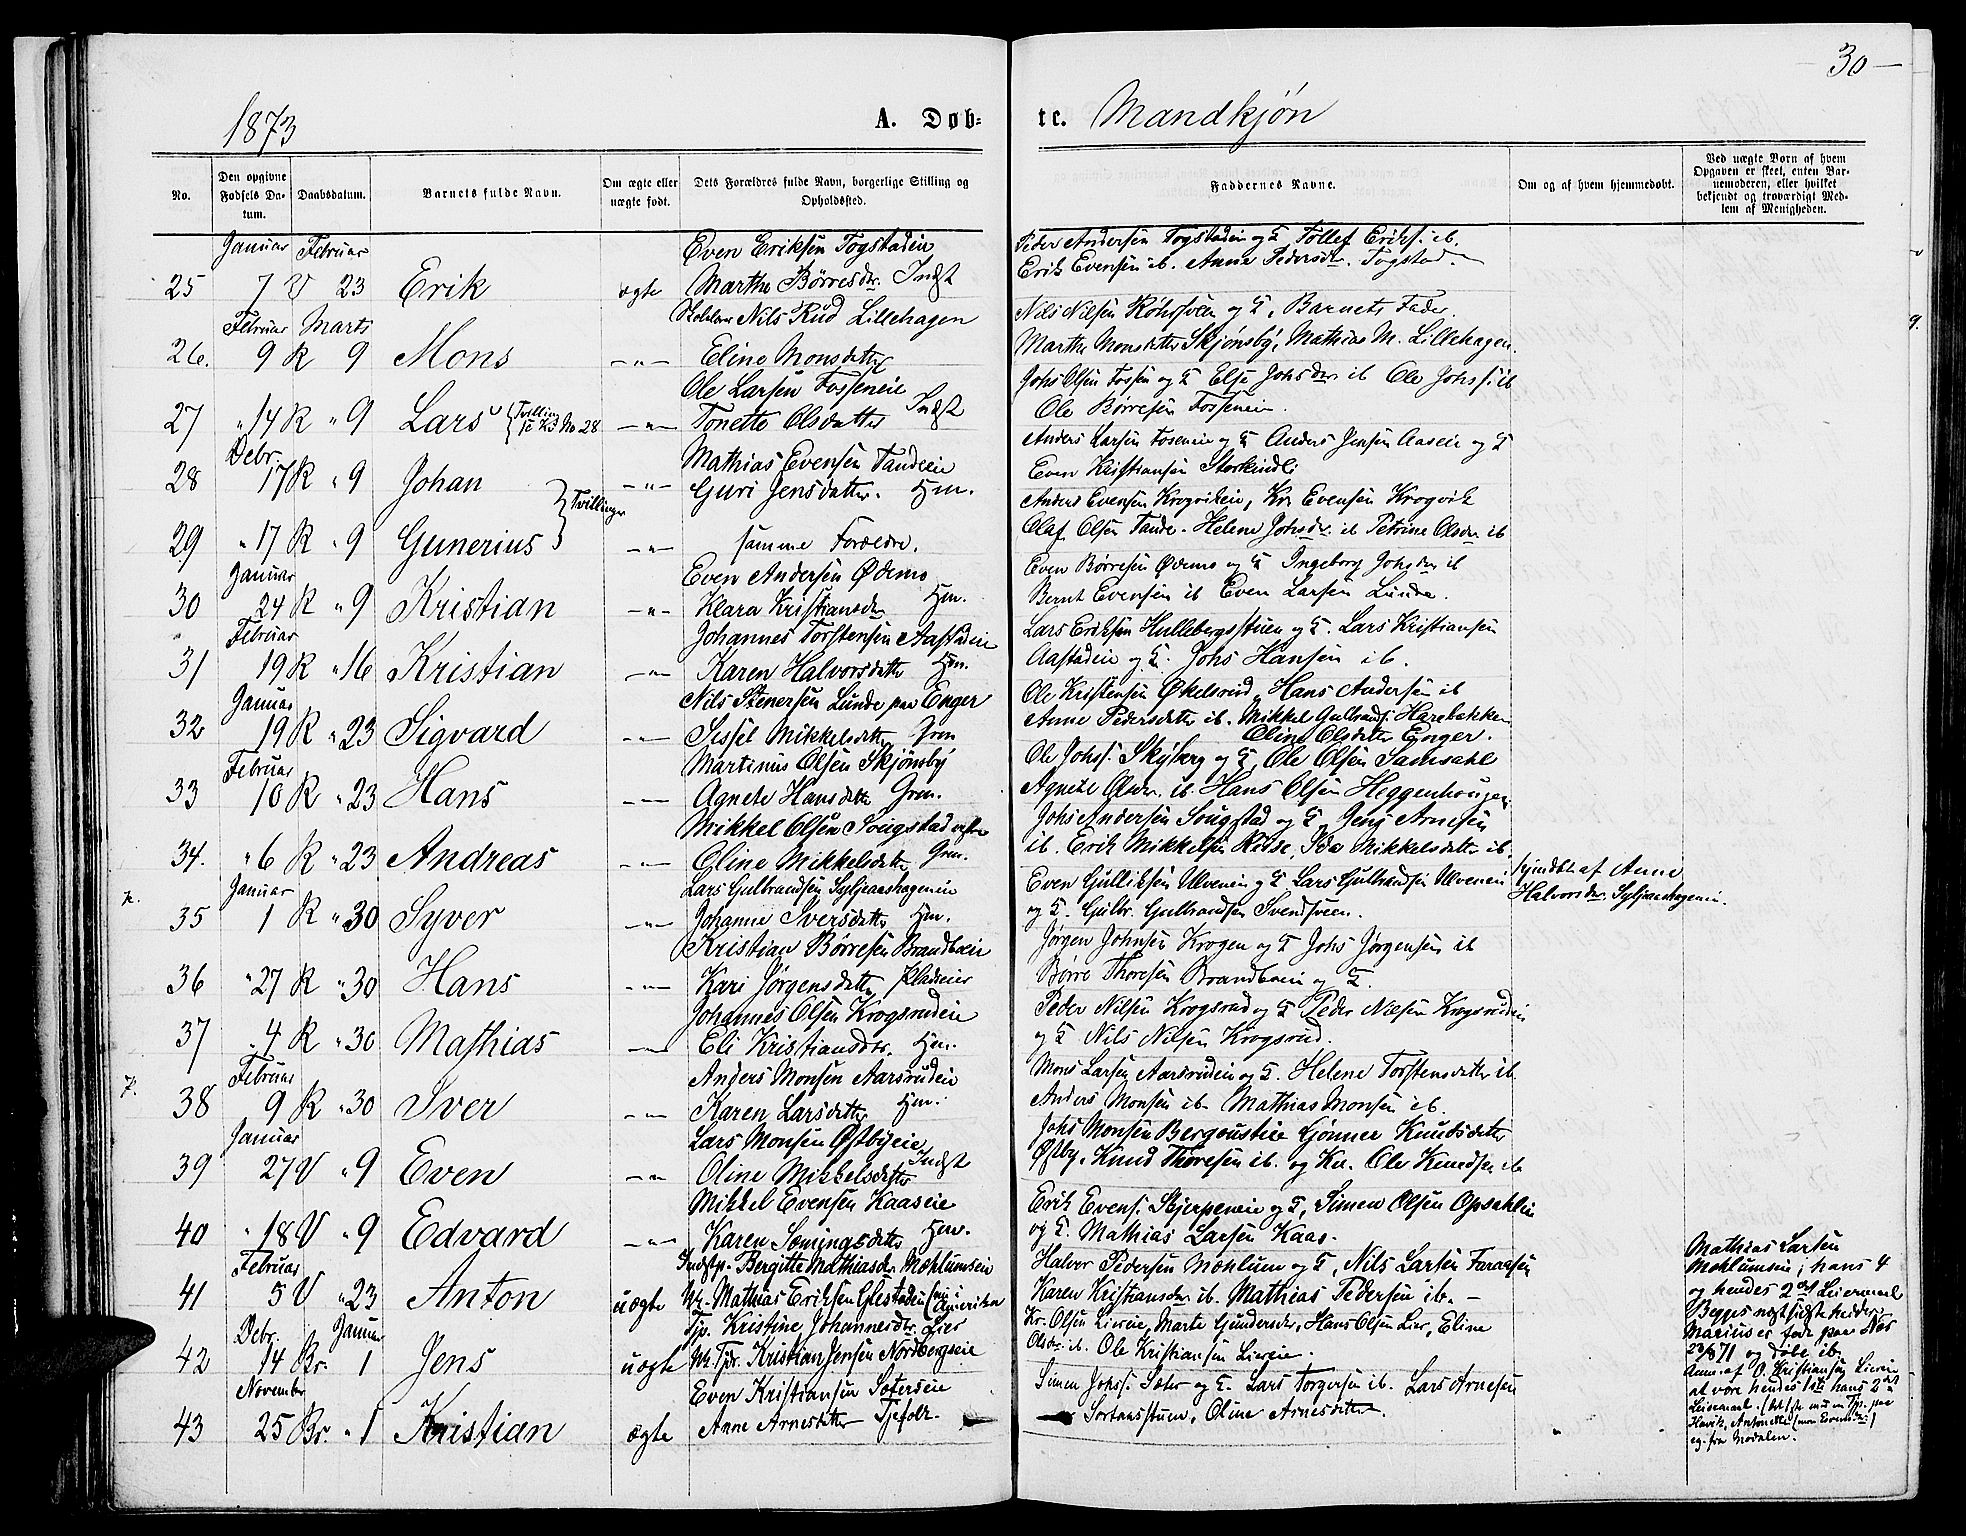 30
1873
A. Døbte. Mandkjøn
No.
Den opgivne Fødsels Datum.
Daabsdatum.
Barnets fulde Navn.
Om ægte eller uægte født.
Dets Forældres fulde Navn, borgerlige Stilling og Opholdssted.
Faddernes Navne.
Om og af hvem hjemmedøbt.
Ved uægte Børn af hvem Opgaven er skeet, enten Barnemoderen, eller hvilket bekjendt og troværdigt Medlem af Menigheden.
Januar Februar Even Eriksen Togstadeie Peder Andersen Togstadeie og Tollef Eriks. ib.
25 7 V 23 Erik ægte Marthe Børresdr. Indst Erik Evensen ib. Anne Pedersdr. Togstad
Februar Marts Nils Rud Lillehagen Nils Nilsen og Barnets Fader.
26. 9 R 9 Mons -"- Eline Monsdatter Marthe Monsdatter Skjønsby, Mathias M. Lillehagen.
Ole Larsen Fosseneie Johs Olsen Fossen og Else Johsdr ib Ole Johss. ib
27 " 14 R " 9 Lars No 28 -"- Tonette Olsdatter Indst Ole Børresen Fosseneie.
Debr. Mathias Evensen Tandeeie Anders Larsen og Anders Jensen Aaseie og
28 17 R " 9 Johan -"- Guri Jensdatter. Hm. Even Kristiansen
Tvillinger Anders Evensen Krogvikeie, Kr. Evensen Krogvik
29 " 17 R " 9 Gunerius -"- samme Forældre. Olaf Olsen Tande. Helene Johsdr ib Petrine Olsdr ib
Januar Even Andersen Ødemo Even Børresen Ødemo og Ingeborg Johsdr ib
30 24 R " 9 Kristian -"- Klara Kristiansdr Hm. Bernt Evensen ib Even Larsen Lunde.
Februar Johannes Torstensen Aastadeie Lars Eriksen Hullebergsstuen og Lars Kristiansen
31 19 R " 16 Kristian -"- Karen Halvorsdatter Hm. Aastadeie og Johs Hansen ib.
Januar Nils Stenersen Lunde paa Enger Ole Kristensen Økelsrud, Hans Andersen ib
32 19 R " 23 Sigvard -"- Sissel Mikkelsdatter Grm Anne Pedersdatter ib. Mikkel Gulbrands. Harebakken
Oline Olsdatter Enger.
Februar Martinus Olsen Skjønsby Ole Johss. Skyberg og Ole Olsen Samsahl
33 10 R " 23 Hans -"- Agnete Hansdatter Grm. Agnete Olsdr. ib Hans Olsen Heggenhougen
Mikkel Olsen Sougstad Johs Andersen Sougstad og Jens Arnesen
34. " 6 R " 23 Andreas -"- Oline Mikkelsdatter Grm. ib. Erik Mikkelsen Ida Mikkelsdatter ib.
Januar Lars Gulbrandsen Syljeaashageneie Even Gulliksen Ulveneie og Lars Gulbrandsen Ulveneie af Anne
35 1 R " 30 Syver -"- Johanne Sversdatter Hm. og Gulbr. Gulbrandsen Svendsveen. Halvorsdr. Syljeaashageneie.
Kristian Børresen Brandboeie Jørgen Johnsen Krogen og Johs Jørgensen ib
36 " 27 R " 30 Hans -"- Kari Jørgensdatter Pladseier Børre Thoresen Brandboeie og
Johannes Olsen Krogsrudeie Peder Nilsen Krogsrud og Peder Nilsen Krogsrudeie
37 " 4 R " 30 Mathias -"- Eli Kristiansdr. Hm. og Nils Nilsen Krogsrud.
Februar Anders Monsen Aarsrudeie Mons Larsen Aarsrudeie og Helene Torstensdatter ib
38 9 R " 30 Iver -"- Karen Larsdatter Hm. Anders Monsen ib Mathias Monsen ib.
Januar Lars Monsen Østbyeie Johs Monsen Gønner Knudsdatter
39 27 V " 9 Even -"- Oline Mikkelsdatter Indst Østby, Knud Thoresen ib. og Ole Knudsen ib
Mikkel Evensen Kaaseie Erik Evens. Skjerpeneie og Simen Olsen Opsahleie
40 " 18 V " 9 Edvard -"- Karen Hm. og Mathias Larsen Kaas.
Februar Bergitte Mathiasdr Mæhlumseie Halvor Pedersen Mæhlum og Nils Larsen
41 5 V " 23 Anton uægte Mathias Eriksen Glestadeie (nu i Amerika Karen Kristiansdr ib. Mathias Pedersen ib. -
Debr. Januar Kristine Johannesdr. Lier Kr. Olsen Liereie, Marte Gundersdr, Hans Olsen Lier, Eline
42 14 Br. 1 Jens uægte Kristian Jensen Nordbergseie Olsdr ib. Ole Kristiansen Liereie.
November Even Kristiansen Sætereie Simen Johss. Sæter og Lars Torgersen ib. Lars Arnesen
43 25 Br. " 1 Kristian ægte Anne Arnesdatter Tjefolk. Oline Arnesdatter.
Mathias Larsen
Mæhlumseie; hans 4
og hendes 2det Leiermaal
Begges
Marius er født paa Næs
71 og døbt ib.
Anm. af O. Kristiansen Liereie
at være hendes 1ste hans 2det
Leiermaal.